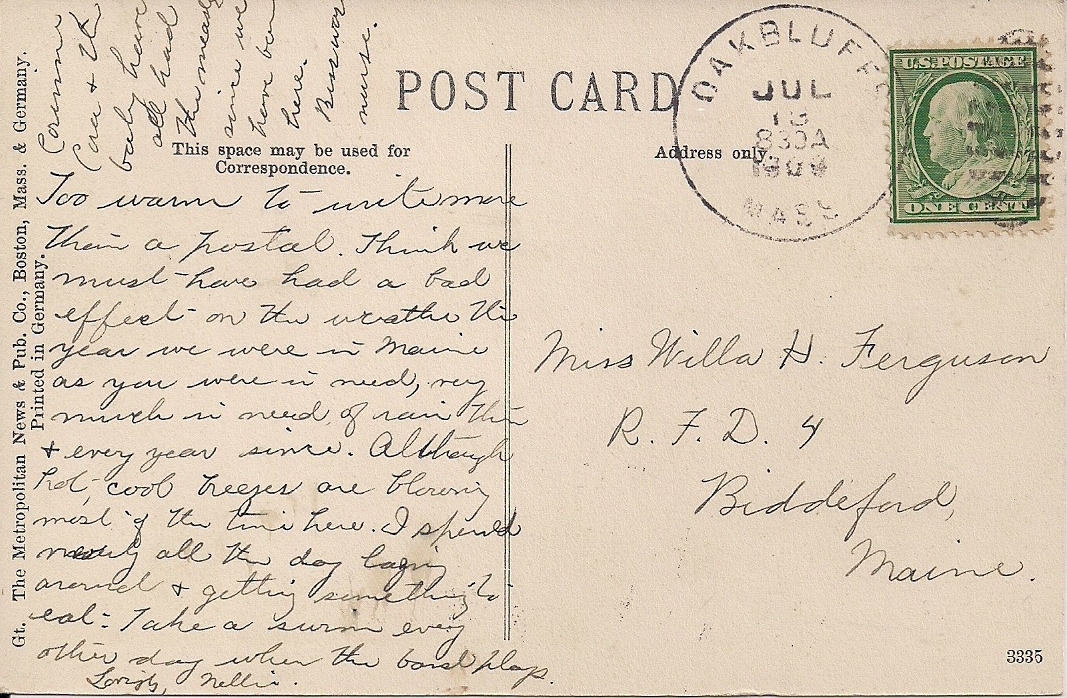 Corinne
Cora & the
baby have
all had
the measles
since we
have been
here.
nurse.
POST CARD
This space may be used for
Correspondence.
Address only.
OAK BLUFFS
JUL
13
830A
1909
MASS
U.S. POSTAGE
ONE CENT
Too warm to write more
than a postal. Think we
must have had a bad
effect on the weather the
year we were in Maine
as you were in need, very
much in need of rain then
& every year since. Although
hot, cool breezes are blowing
most of the time here. I spend
nearly all the day lazing
around & getting something to
eat. Take a swim every
other day when the band plays.
Lovingly, Nellie.
Miss Willa H. Ferguson
R. F. D. 4
Biddeford,
Maine.
Gt. The Metropolitan News & Pub. Co., Boston, Mass. & Germany.
Printed in Germany.
3335